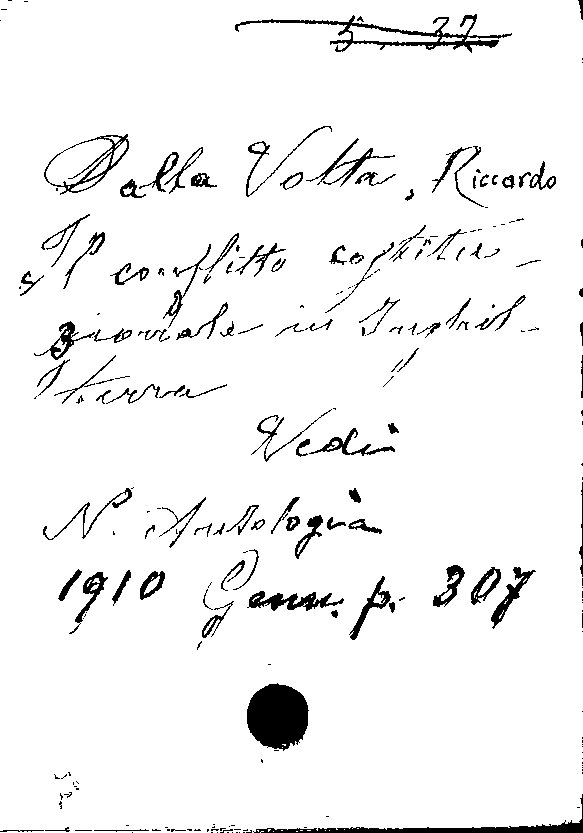 5. 37
Dalla Volta, Riccardo
Il conflitto costitu-
zionale in Inghil-
terra
Vedi
N. Antologia
1910 Genn. p. 307